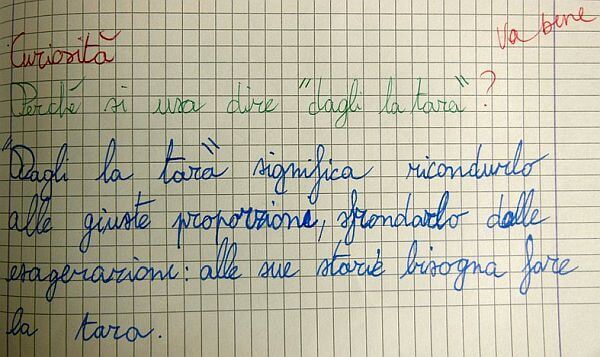 Va bene
Curiosità
Perché si usa dire "dagli la tara"?
"Dagli la tara" significa ricondurlo
alle giuste proporzioni, sfrondarlo dalle
esagerazioni: alle sue storie bisogna fare
la tara.